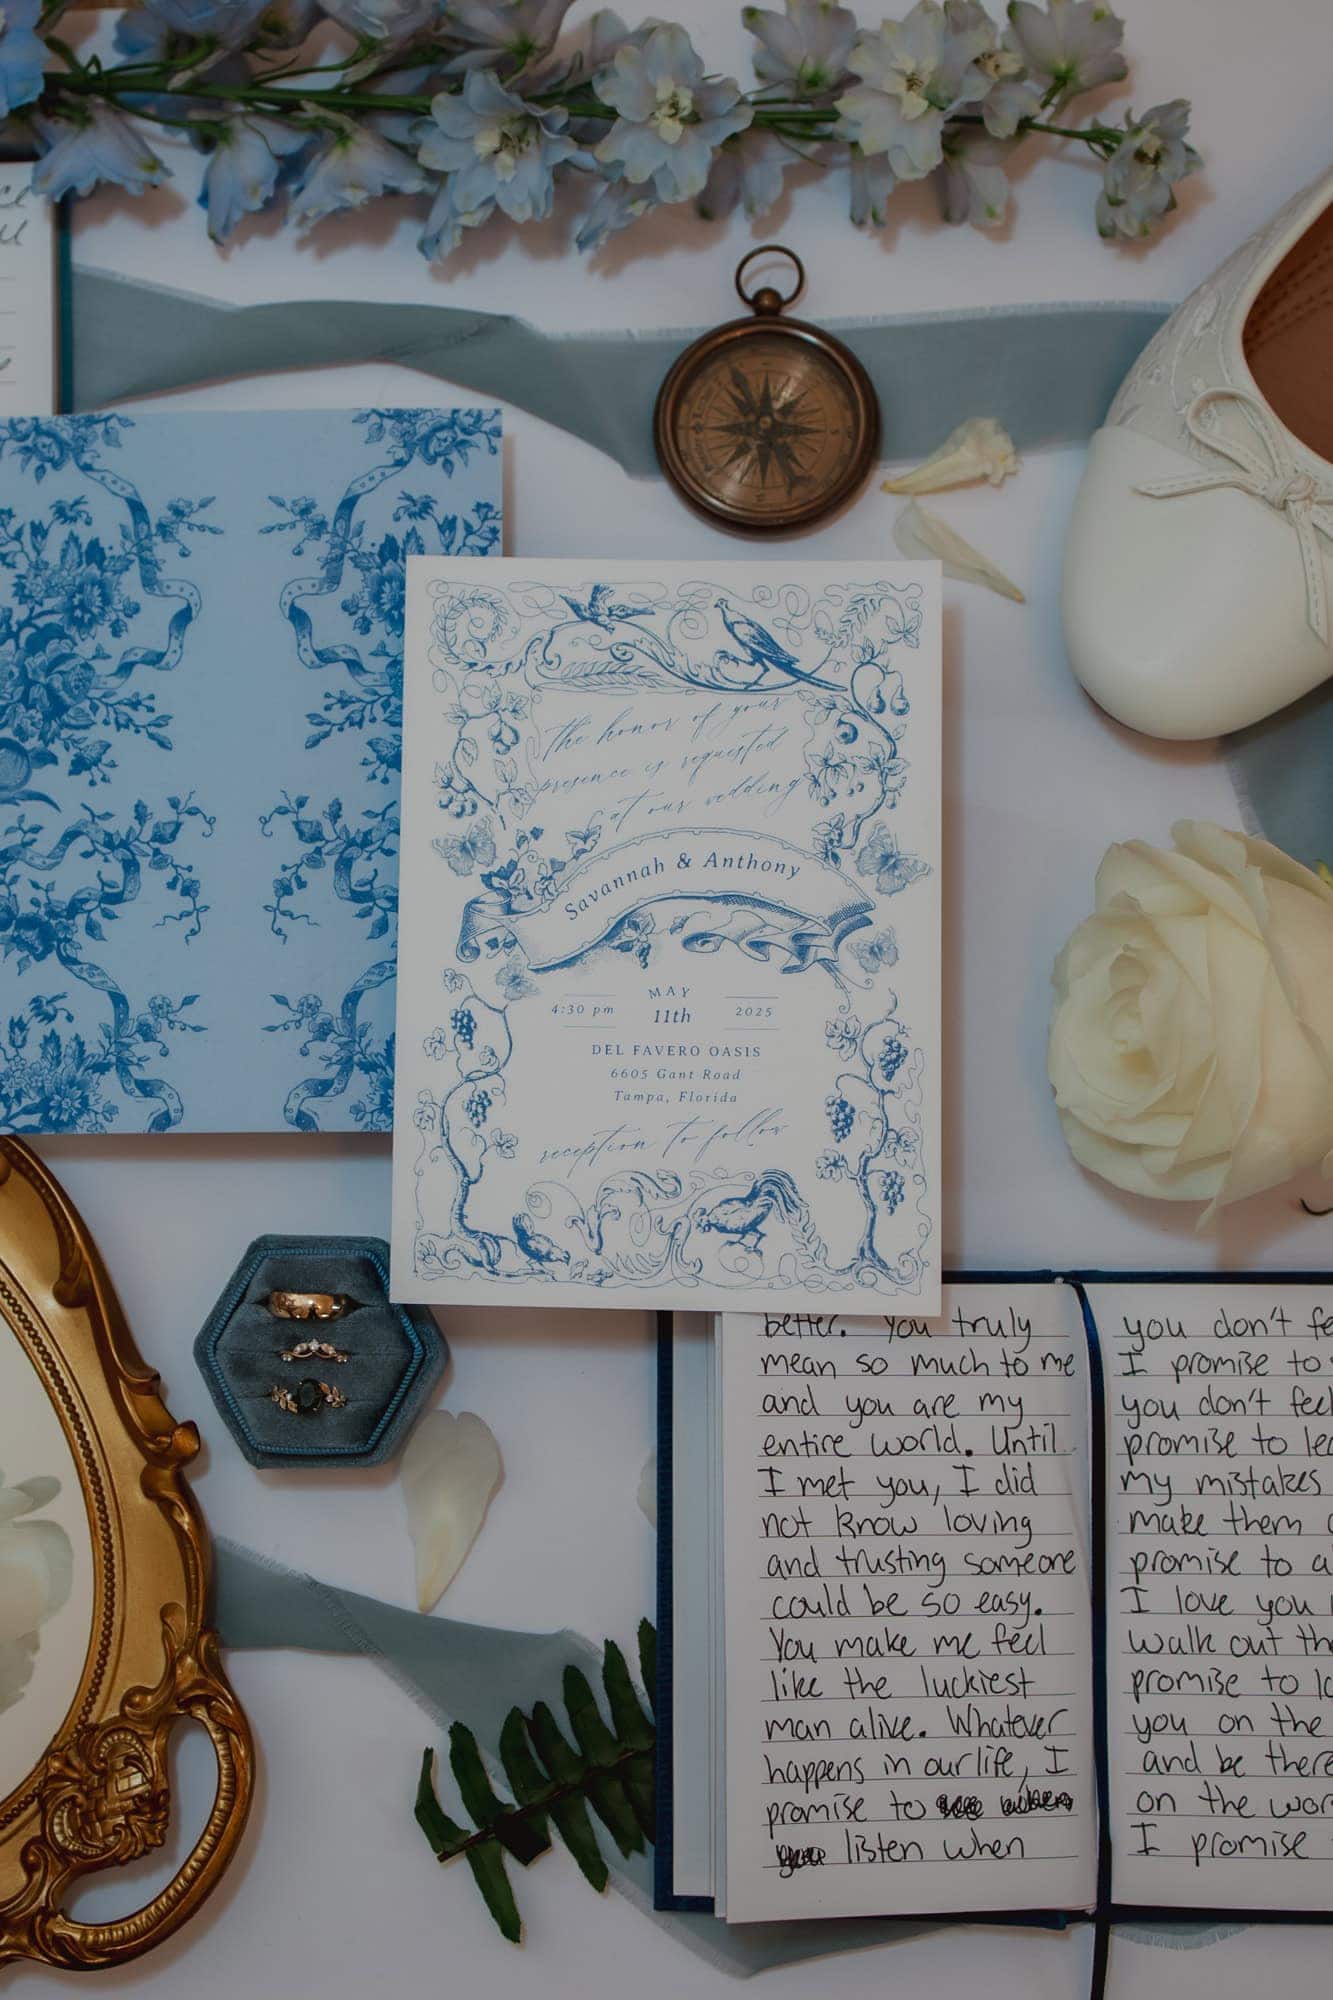 the honor of your
presence is requested
at our wedding
Savannah & Anthony
MAY
4:30 pm 11th 2025
DEL FAVERO OASIS
6605 Gant Road
Tampa, Florida
reception to follow
better. You truly
mean so much to me
and you are my
entire world. Until
I met you, I did
not know loving
and trusting someone
could be so easy.
You make me feel
like the luckiest
man alive. Whatever
happens in our life, I
promise to
listen when
you don't fe
I promise to
you don't feel
promise to le
my mistakes
make them
promise to a
I love you
walk out th
promise to lo
you on the
and be there
on the wor
I promise